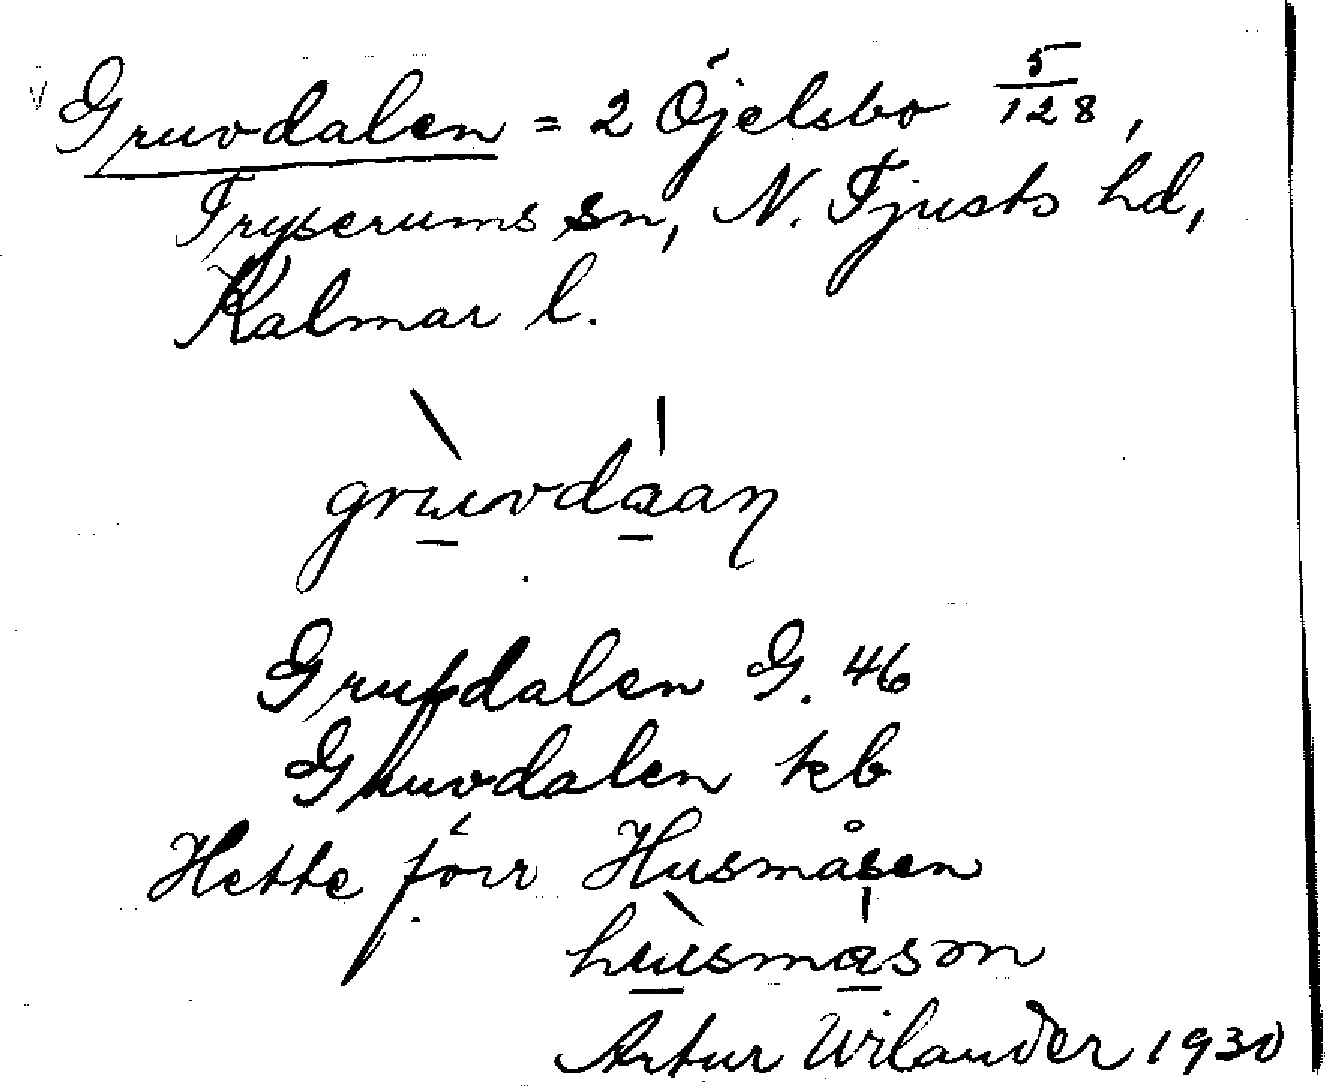 Gruvdalen = 2 Öjelsbo 5/128,
Tryserums sn, N. Tjusts hd,
Kalmar l.
gruvdaaŋ
Grufdalen G. 46
Gruvdalen kb
Hette förr Husmåsen
husmåsən
Artur Wilander 1930